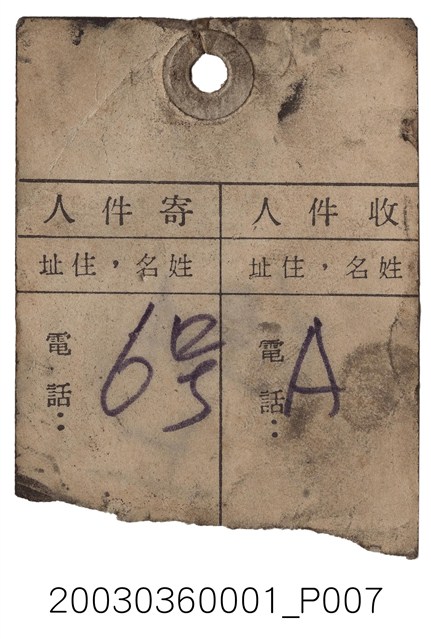 收件人
姓名，住址
電話：
A
寄件人
姓名，住址
電話：
6号
20030360001_P007